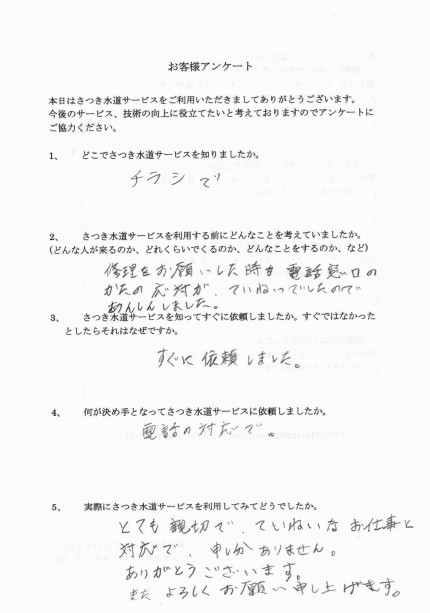 お客様アンケート
本日はさつき水道サービスをご利用いただきましてありがとうございます。
今後のサービス、技術の向上に役立てたいと考えておりますのでアンケートに
ご協力ください。
1、 どこでさつき水道サービスを知りましたか。
チラシで
2、 さつき水道サービスを利用する前にどんなことを考えていましたか。
(どんな人が来るのか、どれくらいでくるのか、どんなことをするのか、など)
修理をお願いした時か 電話窓口の
かたの 応対が、ていねいでしたので
あんしんしました。
3、 さつき水道サービスを知ってすぐに依頼しましたか。すぐではなかった
としたらそれはなぜですか。
すぐに 依頼しました。
4、 何が決め手となってさつき水道サービスに依頼しましたか。
電話の対応で。
5、 実際にさつき水道サービスを利用してみてどうでしたか。
とても 親切で、ていねいな お仕事と
対応で、申し分ありません。
ありがとうございます。
また よろしく お願い 申し上げます。